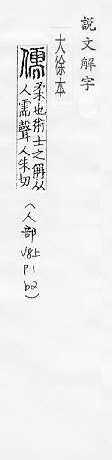 說文解字
大徐本
儒
柔也術士之偁从
人需聲人朱切
(人部
V8上
P1
b2)